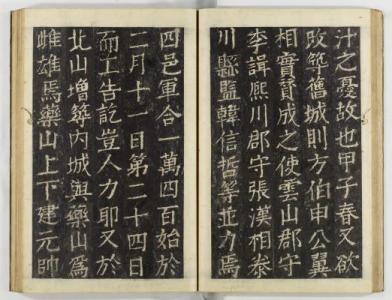 汁之憂故也甲子春又欲
改築舊城則方伯申公翼
相實贊成之使雲山郡守
李諿熙川郡守張漢相泰
川縣監韓信哲等並力焉
四邑軍合一萬四百始於
二月十一日第二十四日
而工告訖豈人力耶又於
北山增築内城與藥山爲
雌雄焉藥山上下建元帥